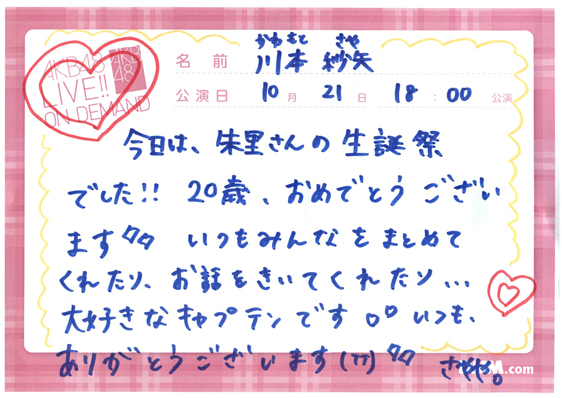 AKB48
LIVE!!
ON DEMAND
AKB
48
かわもと さや
名前 川本 紗矢
公演日 10月21日 18:00 公演
今日は、朱里さんの生誕祭
でした!! 20歳、おめでとうござい
ます いつもみんなをまとめて
くれたり、お話をきいてくれたり...
大好きなキャプテンです いつも、
ありがとうございます さやや。
M.com